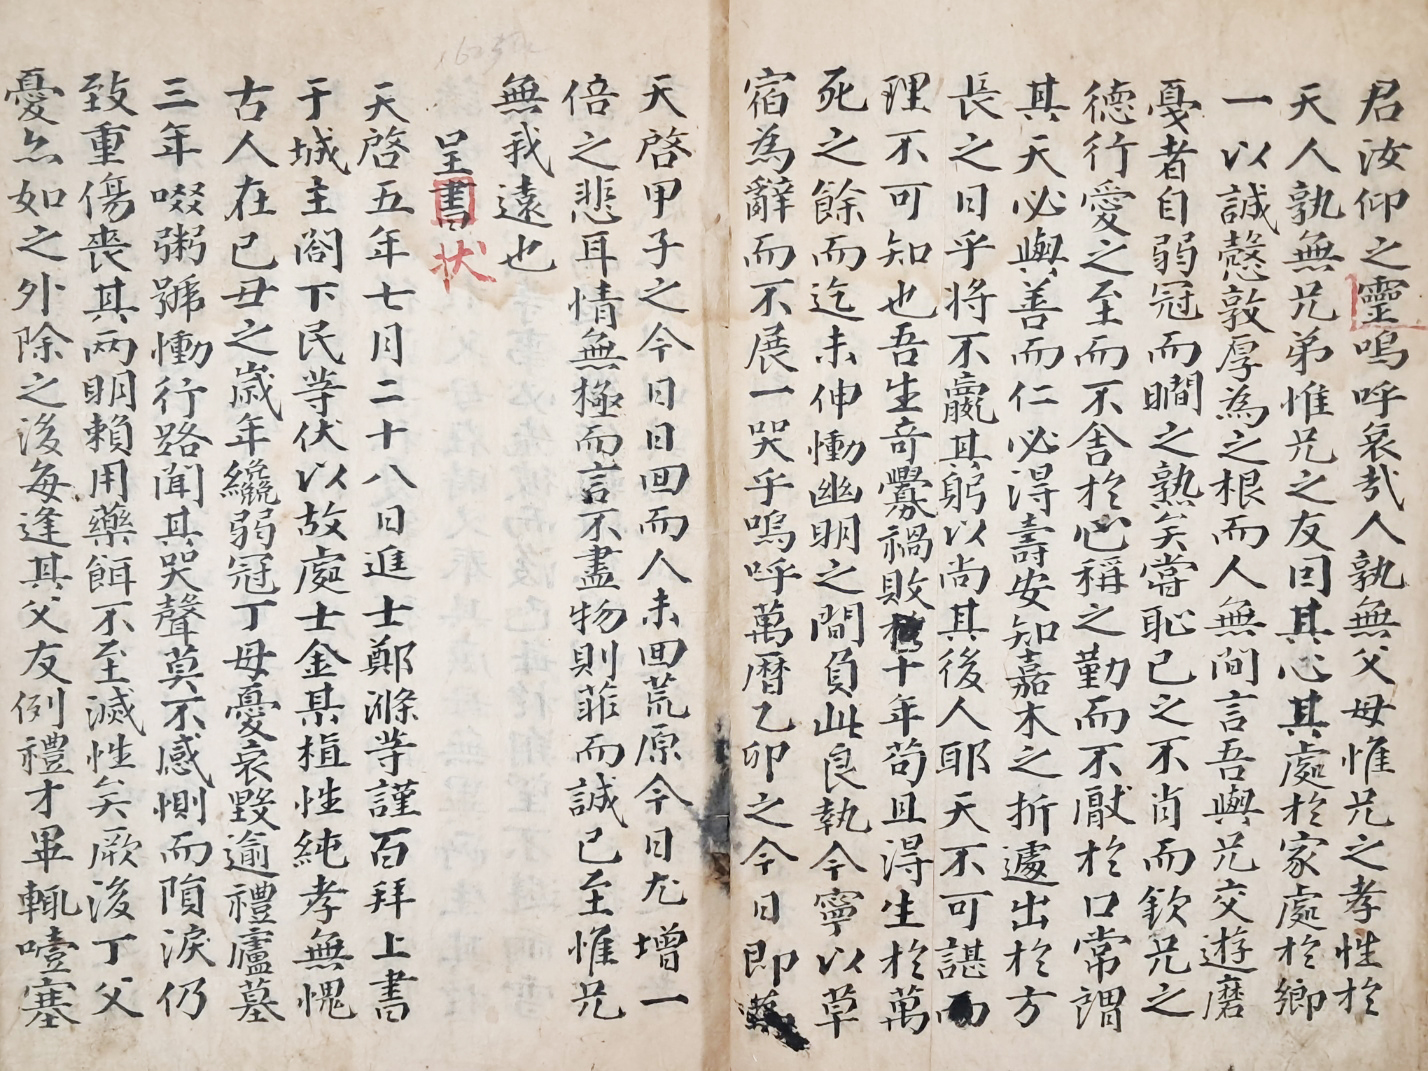 君汝仰之靈嗚呼哀哉人孰無父母惟兄之孝性於
天人孰無兄弟惟兄之友因其心其處於家處於鄉
一以誠慤敦厚為之根而人無間言吾與兄交遊磨
戞者自弱冠而瞯之熟矣嘗恥已之不肖而欽兄之
德行愛之至而不舍於心稱之勤而不厭於口常謂
其天必與善而仁必淂壽安知嘉木之折遽出於方
長之日乎将不贏其躬以尚其後人耶天不可諶而
理不可知也吾生奇釁禍敗十年苟且淂生於萬
死之餘而迄未伸慟幽明之間負此良執今寧以草
宿為辭而不展一哭乎嗚呼萬曆乙卯之今日即
天啓甲子之今日日回而人未回荒原今日尤增一
倍之悲耳情無極而言不盡物則菲而誠已至惟兄
無我遠也
呈書状
天啓五年七月二十八日進士鄭滌等謹百拜上書
于城主閤下民等伏以故處士金某植性純孝無愧
古人在已丑之歲年纔弱冠丁母憂哀毀逾禮廬墓
三年啜粥號慟行路聞其哭聲莫不感惻而隕淚仍
致重傷喪其兩明賴用藥餌不至滅性矣厥後丁父
憂亦如之外除之後每逢其父友例禮才畢輒噎塞